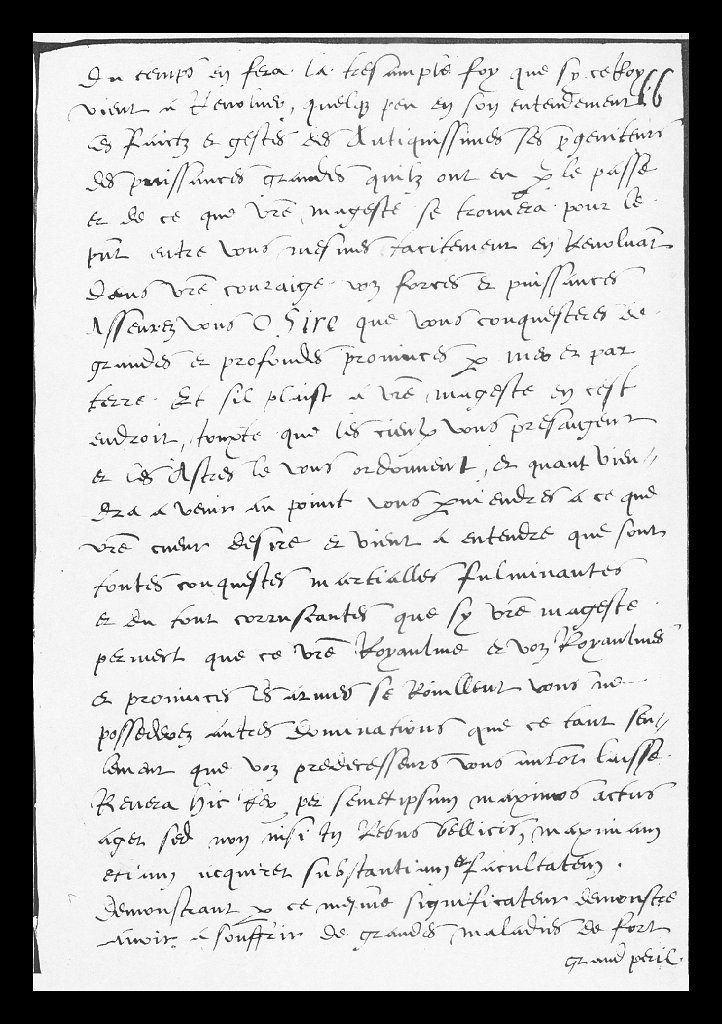 Du temps en fera la tresample foy que sy ce Roy
vient a Revolver, quelq; peu en son entendement 66
les faictz et gestes des Antiquissimes ses pgeniteurs
des puissances grandes quilz ont eu p le passe
et de ce que vre mageste se trouvera pour le
pnt entre vous mesmes tacitement en Revolvant
Dans vre couraige voz forces et puissances
Asseurez vous O Sire que vous conquesteres de
grandes et profondes provinces p mer et par
terre. Et sil plaist a vre mageste en cest
endroit, que les cieulx vous presaigent
et les Astres le vous ordonnent, et quant vien-
dra a venir au point vous pviendres a ce que
vre cueur desire et vient a entendre que sont
toutes conquestes martialles fulminantes
et du tout corruscantes que sy vre mageste
permect que ce vre Royaulme et voz Royaulmes
et provinces les armes se Roillent vous ne
possederez autres dominations que ce tant seu-
lement que voz predecesseurs vous auront laisse.
Revera hic Rex per semetipsum maximos actus
aget sed non nisi In Rebus bellicis, maximam
etiam acquiret substantiam et facultatem.
demonstrant p ce mesme significateur demonstre
avoir a souffrir de grandes maladies de fort
grand peril.